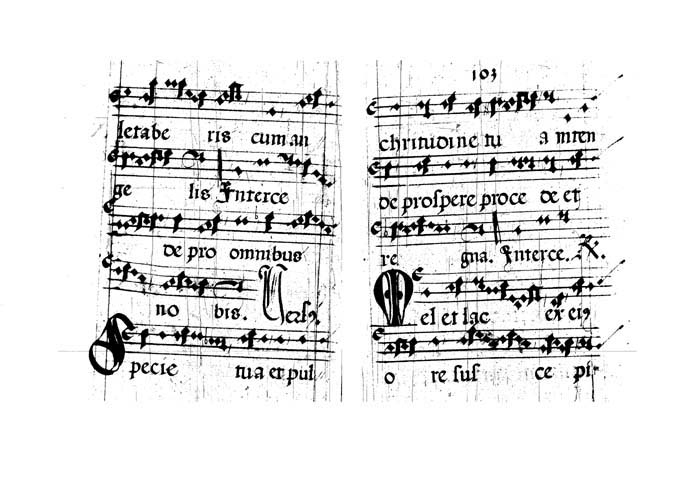 letabe ris cum an
ge lis Interce
de pro omnibus
no bis. Versꝰ.
Specie tua et pul
103
chritudine tu a inten
de prospere proce de et
re gna. Interce. ℟.
Mel et lac ex eiꝰ
o re sus ce pi